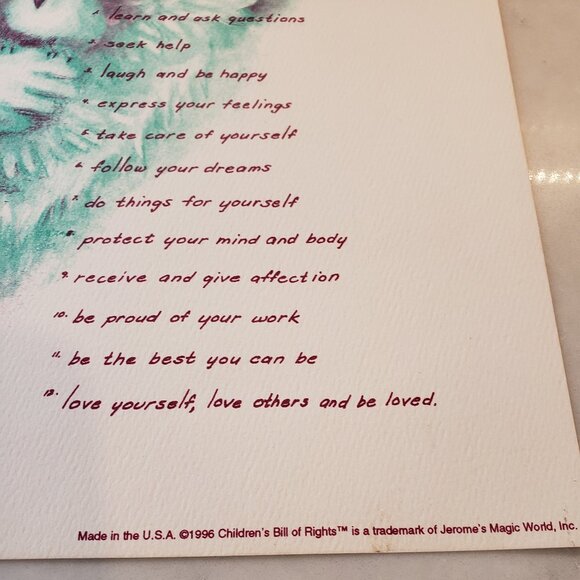 1. learn and ask questions
2. seek help
3. laugh and be happy
4. express your feelings
5. take care of yourself
6. follow your dreams
7. do things for yourself
8. protect your mind and body
9. receive and give affection
10. be proud of your work
11. be the best you can be
12. love yourself, love others and be loved.
Made in the U.S.A. ©1996 Children's Bill of Rights™ is a trademark of Jerome's Magic World, Inc.